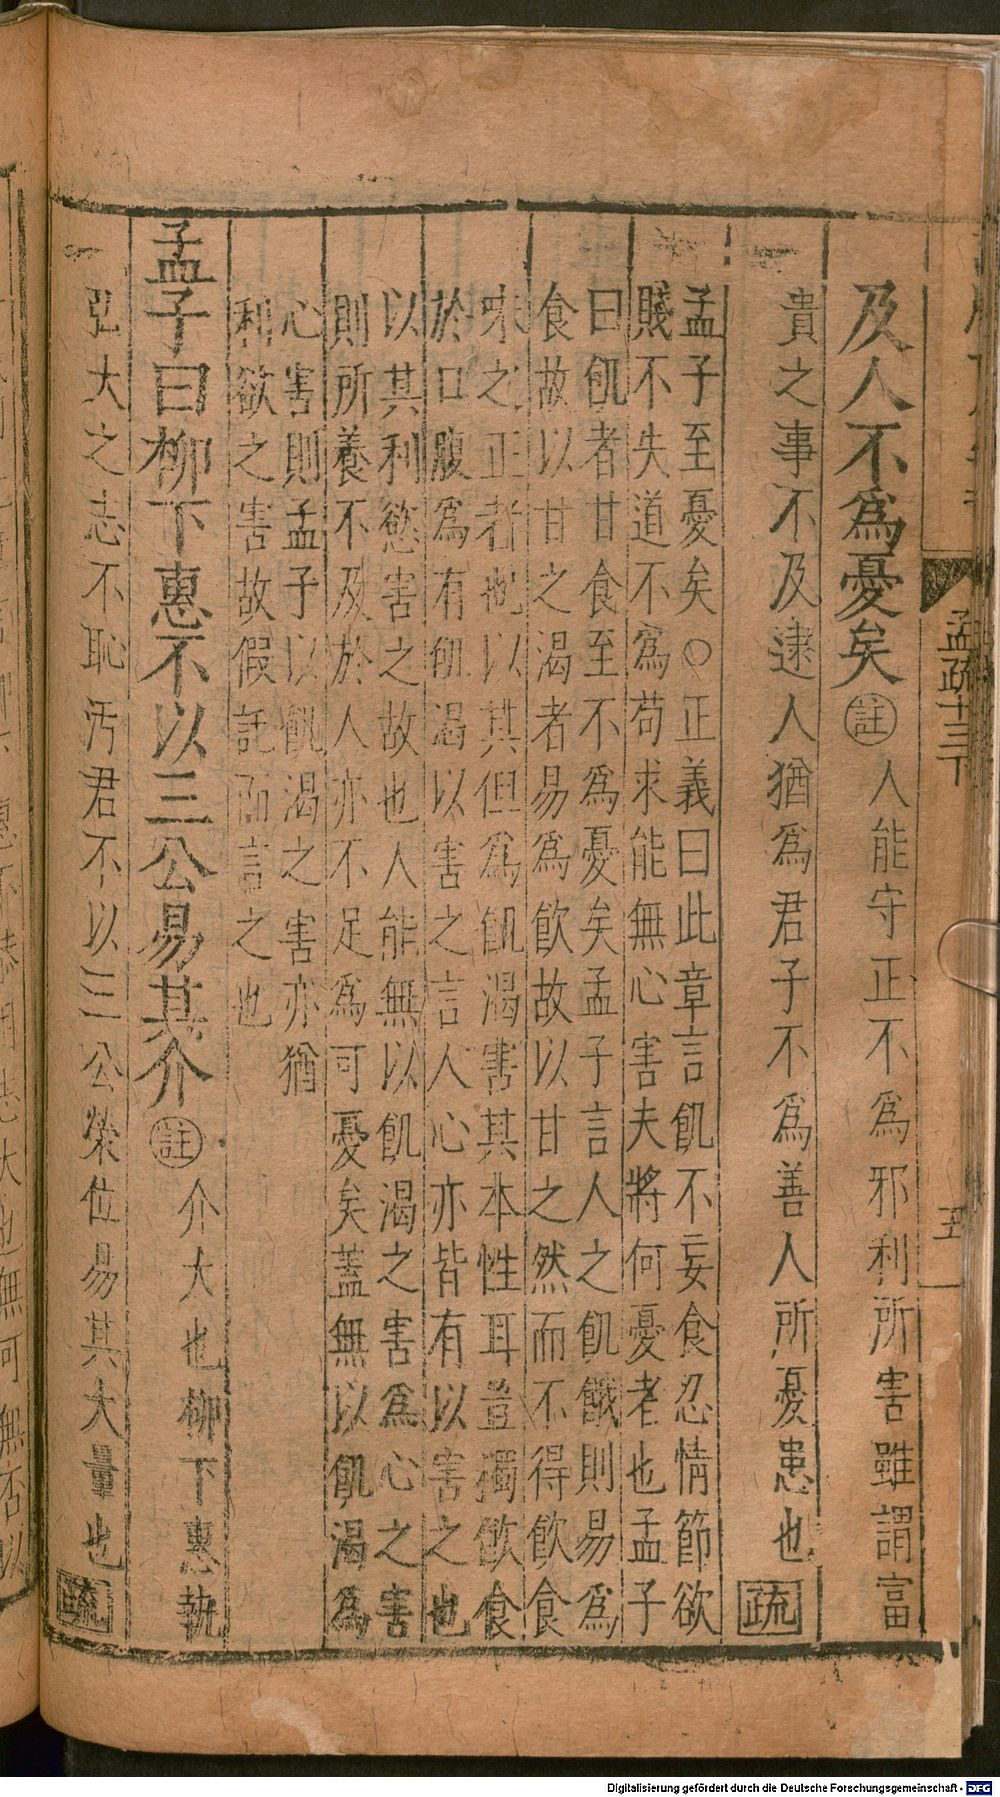 孟疏十三下
五
及人不爲憂矣註人能守正不爲邪利所害雖謂富
貴之事不及逮人猶爲君子不爲善人所憂患也疏
孟子至憂矣○正義曰此章言飢不妄食忍情節欲
賤不失道不爲苟求能無心害夫將何憂者也孟子
曰飢者甘食至不爲憂矣孟子言人之飢餓則易爲
食故以甘之渴者易爲飲故以甘之然而不得飲食
味之正者也以其但爲飢渴害其本性耳豈獨飲食
於口腹爲有飢渴以害之言人心亦皆有以害之也
以其利慾害之故也人能無以飢渴之害爲心之害
則所養不及於人亦不足爲可憂矣蓋無以飢渴爲
心害則孟子以飢渴之害亦猶
利欲之害故假託而言之也
孟子曰柳下惠不以三公易其介註介大也柳下惠執
弘大之志不恥汚君不以三公榮位易其大量也疏
Digitalisierung gefördert durch die Deutsche Forschungsgemeinschaft - DFG